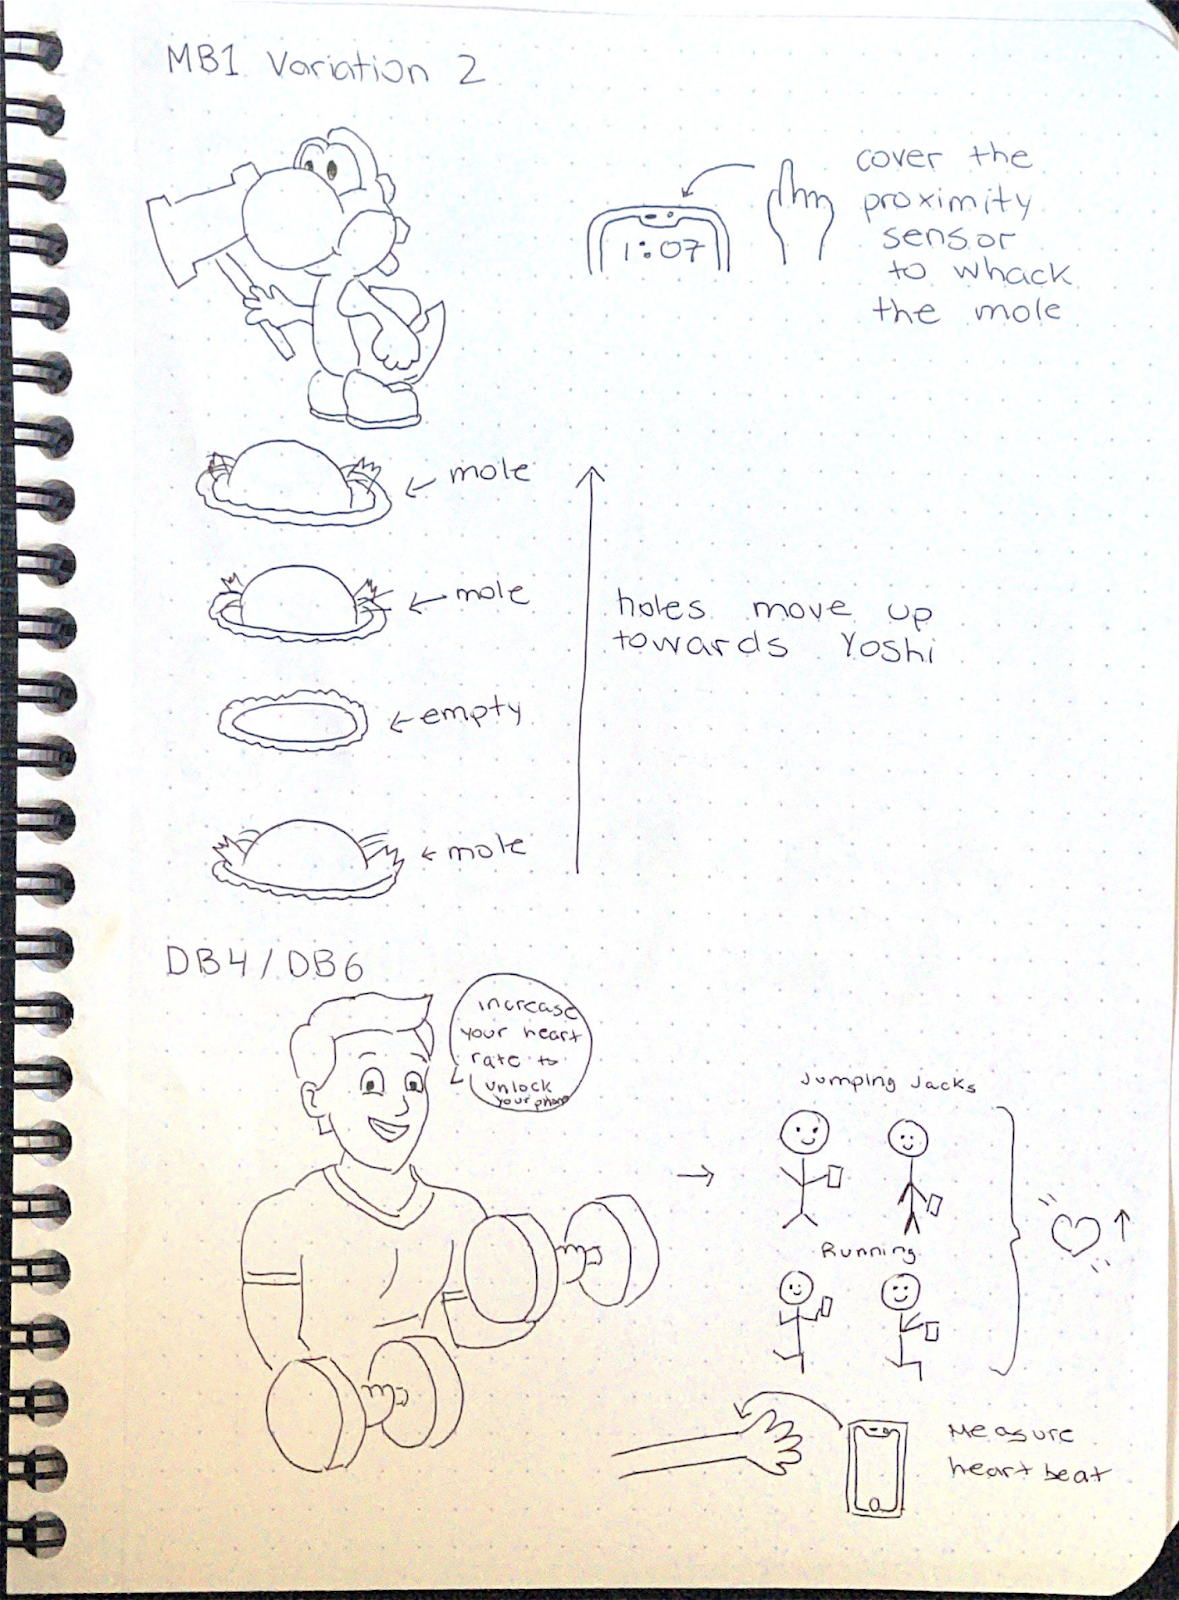 MB1 Variation 2
cover the
proximity
sensor
to whack
the mole
1:07
mole
mole
holes move up
towards Yoshi
empty
mole
DB4/DB6
increase
your heart
rate to
unlock
your phone
Jumping Jacks
Running
Measure
heart beat